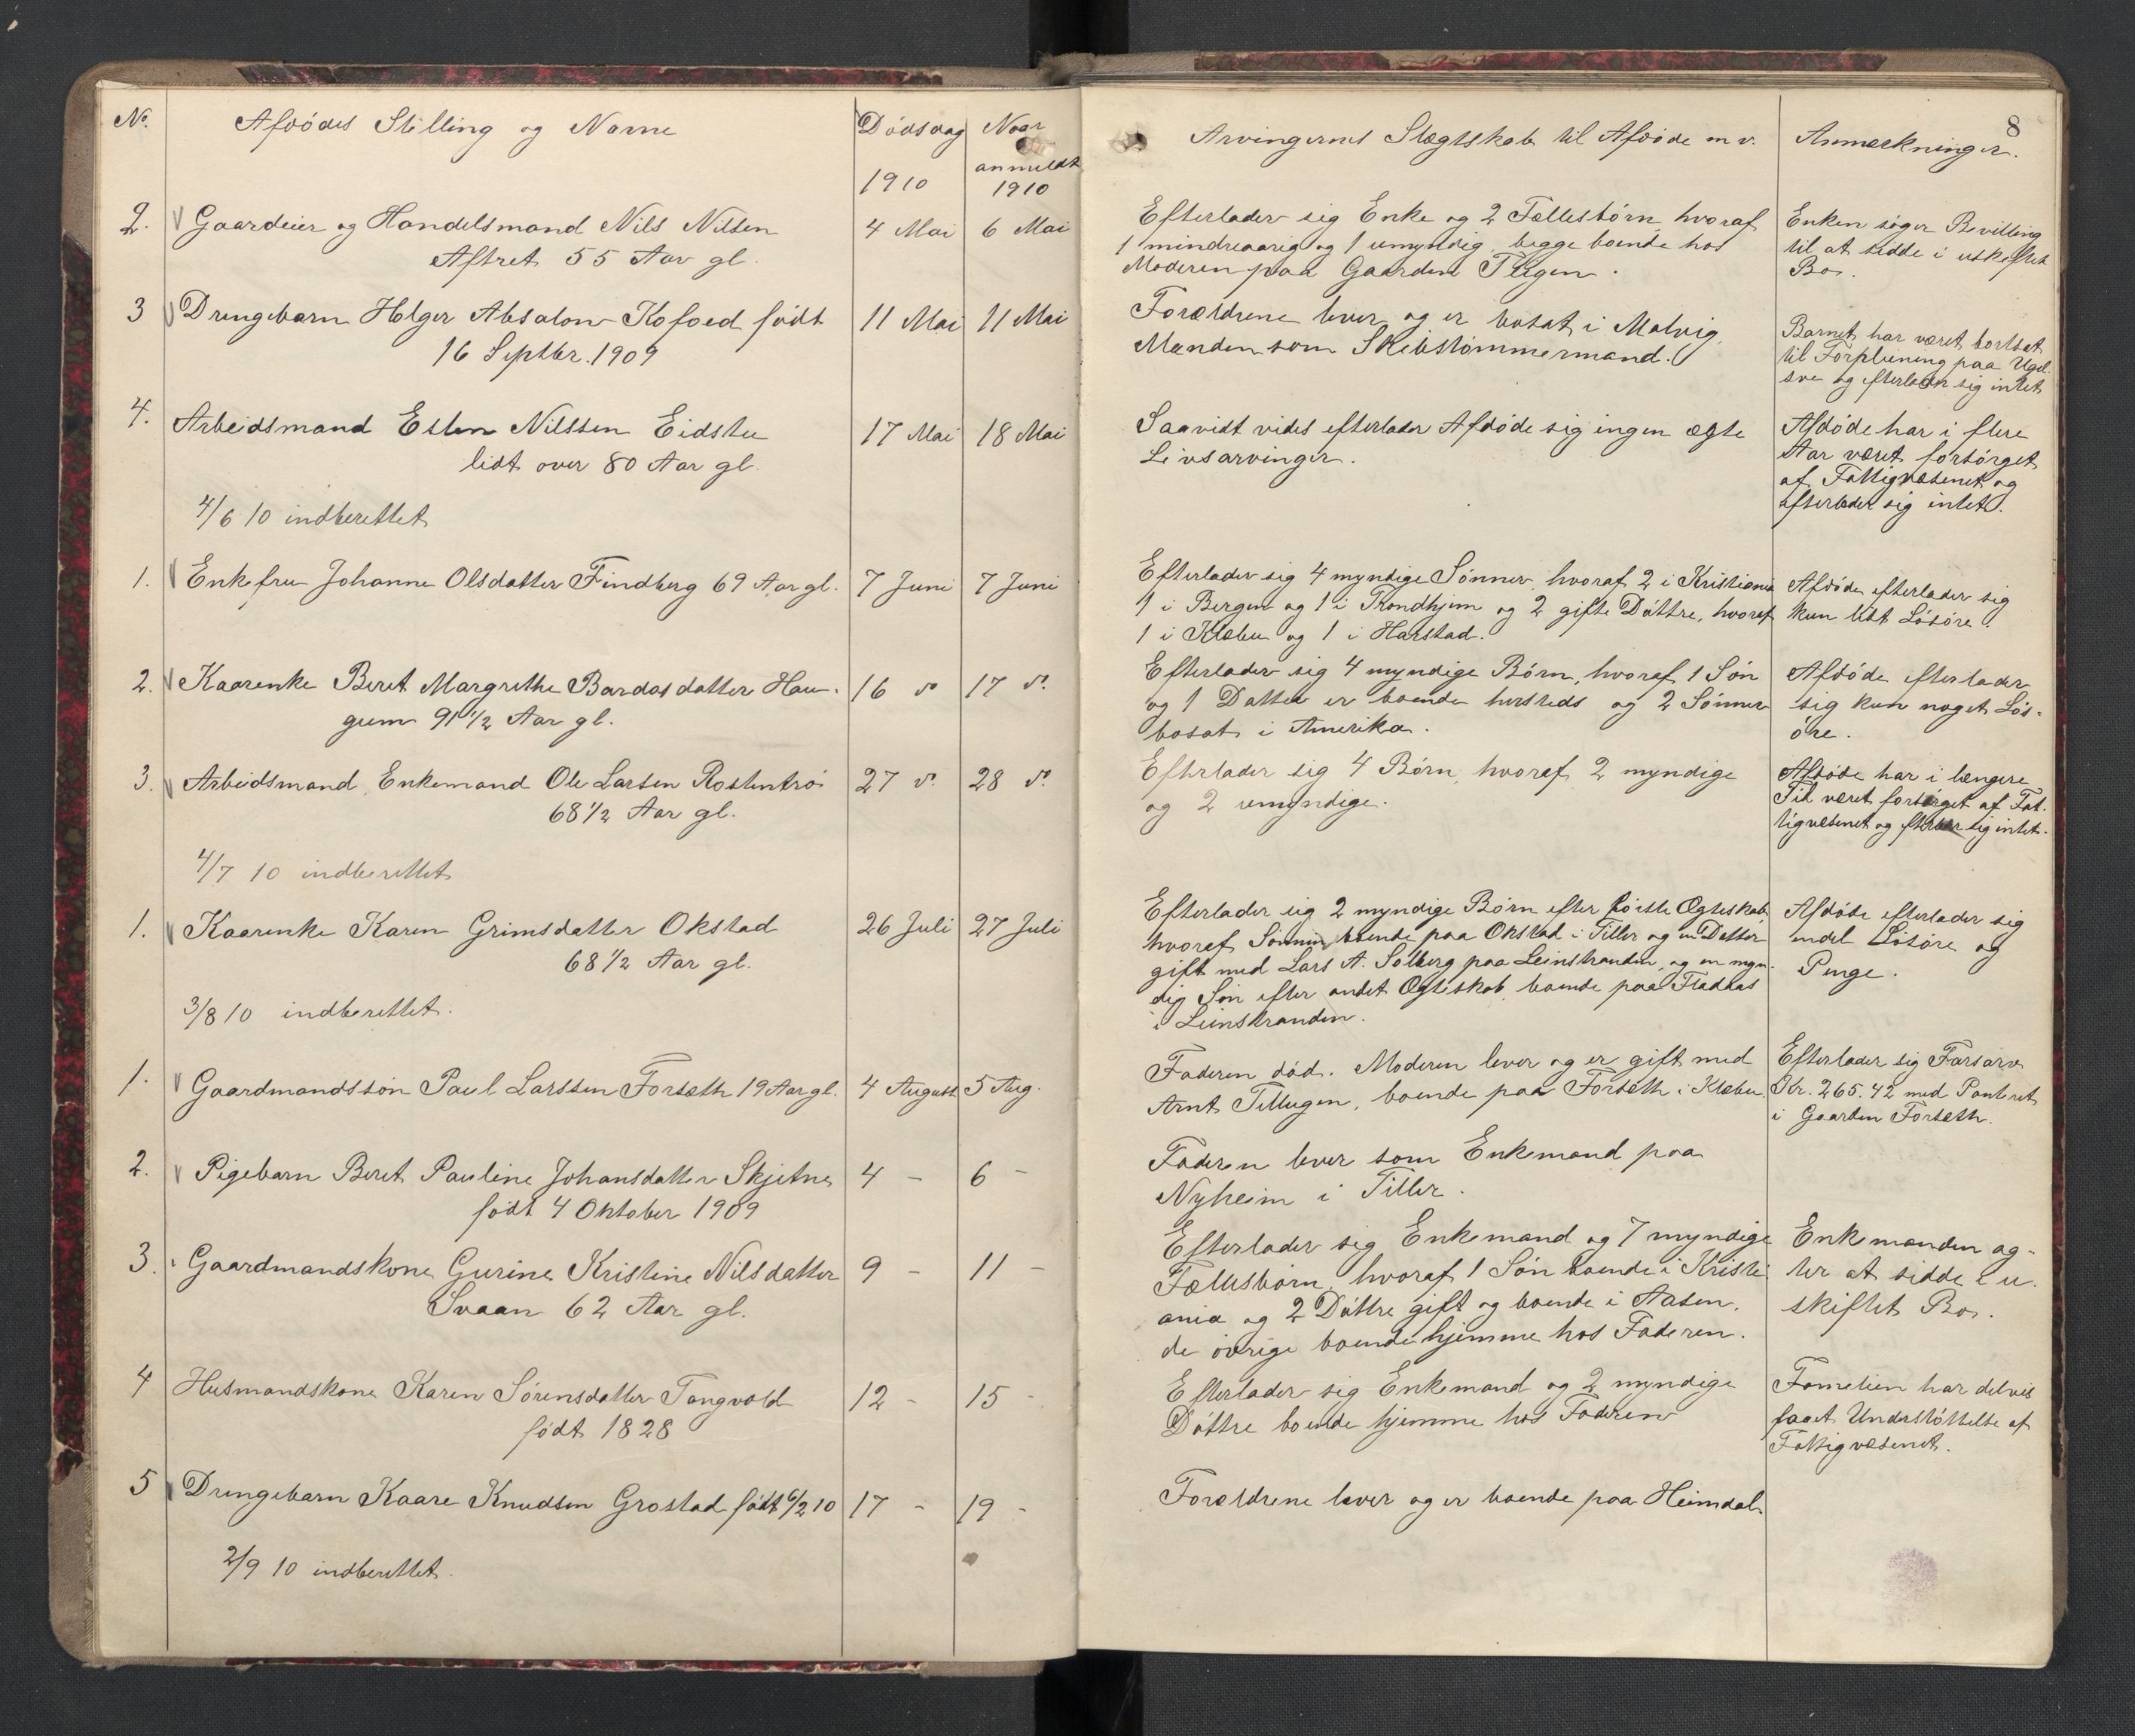 8
No. Afdødes Stilling og Navn Dødsdag Naar
anmeldt
1910 1910
Arvingernes Slægtskab til Afdøde m.v. Anmærkninger.
2. Gaardeier og Handelsmand Nils Nilsen 4 Mai 6 Mai
Aftret 55 Aar gl.
Efterlader sig Enke og 2 Fællesbørn, hvoraf
1 mindreaarig og 1 umyndig, begge boende hos
Moderen paa Gaarden
Enken søger Bevilling
til at sidde i uskiftet
Bo.
3 Drengebarn Holger Absalon Kofoed født 11 Mai 11 Mai
16 Septbr. 1909
Forældrene lever og er bosat i Malvig,
Manden som Skibstømmermand.
Barnet har været bortsat
til Forpleining paa Ugel-
sve og efterlader sig intet
4. Arbeidsmand Esten Nilssen Eidstu 17 Mai 18 Mai
lidt over 80 Aar gl.
Saavidt vides efterlader Afdøde sig ingen ægte
Livsarvinger.
Afdøde har i flere
Aar været forsørget
af Fattigvæsenet og
efterlader sig intet.
4/6 10 indberettet
1. Enkefru Johanne Olsdatter Findberg 69 Aar gl. 7 Juni 7 Juni
Efterlader sig 4 myndige Sønner, hvoraf 2 i Kristiania
1 i Bergen og 1 i Trondhjem og 2 gifte Døttre, hvoraf
1 i Klæbu og 1 i Harstad.
Afdøde efterlader sig
kun lidt Løsøre.
2. Kaarenke Beret Margrethe Bardosdatter Hau- 16 do 17 do
gum 91 1/2 Aar gl.
Efterlader sig 4 myndige Børn, hvoraf 1 Søn
og 1 Datter er boende hersteds og 2 Sønner
bosat i Amerika.
Afdøde efterlader
sig kun noget Løs-
øre.
3. Arbeidsmand, Enkemand Ole Larsen Rostentrø 27 do 28 do
68 1/2 Aar gl.
Efterlader sig 4 Børn, hvoraf 2 myndige
og 2 umyndige.
Afdøde har i længere
Tid været forsørget af Fat-
tigvæsenet og efterlader sig intet.
4/7 10 indberettet
1. Kaarenke Karen Grimsdatter Okstad 26 Juli 27 Juli
68 1/2 Aar gl.
Efterlader sig 2 myndige Børn efter første Ægteskab,
hvoraf Sønnen boende paa Okstad i Tiller og en Datter
gift med Lars A. Solberg paa Leinstranden, og en myn-
dig Søn efter andet Ægteskab, boende paa Fladaas
i Leinstranden.
Afdøde efterlader sig
endel Løsøre og
Penge.
3/8 10 indberettet.
1. Gaardmandssøn Paul Larssen Forseth 19 Aar gl. 4 August 5 Aug.
Faderen død. Moderen lever og er gift med
Arnt Tellugen, boende paa Forseth i Klæbu.
Efterlader sig Farsarv
Kr. 265.42 med Panteret
i Gaarden Forseth.
2. Pigebarn Beret Pauline Johansdatter Skjetne 4 - 6 -
født 4 Oktober 1909
Faderen lever som Enkemand paa
Nyheim i Tiller.
3. Gaardmandskone Gurine Kristine Nilsdatter 9 - 11 -
Svaan 62 Aar gl.
Efterlader sig Enkemand og 7 myndige
Fællesbørn, hvoraf 1 Søn boende i Kristi-
ania og 2 Døttre gift og boende i Aasen,
de øvrige boende hjemme hos Faderen.
Enkemanden ag-
ter at sidde i u-
skiftet Bo.
4 Husmandskone Karen Sørensdatter Tangvold 12 - 15 -
født 1828
Efterlader sig Enkemand og 2 myndige
Døttre boende hjemme hos Faderen
Famelien har delvis
faaet Understøttelse af
Fattigvæsenet.
5 Drengebarn Kaare Knudsen Grostad født 6/2 10 17 - 19 -
Forældrene lever og er boende paa Heimdal.
2/9 10 indberettet.